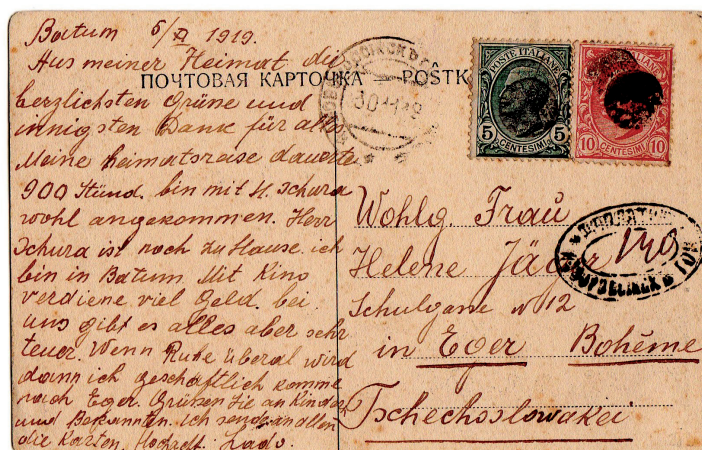 Batum 6/XI 1919.
Aus meiner Heimat die
herzlichsten Grüne und
innigsten Dank für alles
Meine heimatsreise dauerte
900 Stünd. bin mit H. Schura
wohl angekommen. Herr
Schura ist noch zu Hause. ich
bin in Batum. Mit Kino
verdiene viel Geld. bei
uns gibt es alles aber sehr
teuer. Wenn Ruhe überal wird
dann ich geschäftlich komme
nach Eger. Grüßen Sie an Kinder
und Bekannten. Ich sende an allen
die Karten. Hochacht. Lado.
ПОЧТОВАЯ КАРТОЧКА — POSTK
30 11 19
POSTE ITALIANE
5 CENTESIMI 5
ITALIANE
10 CENTESIMI 10
Wohlg. Fraŭ
Helene Jäger
Schulgane N 12
in Eger Bohême
Tschechoslowakei
ДОПЛАТИТЬ
140